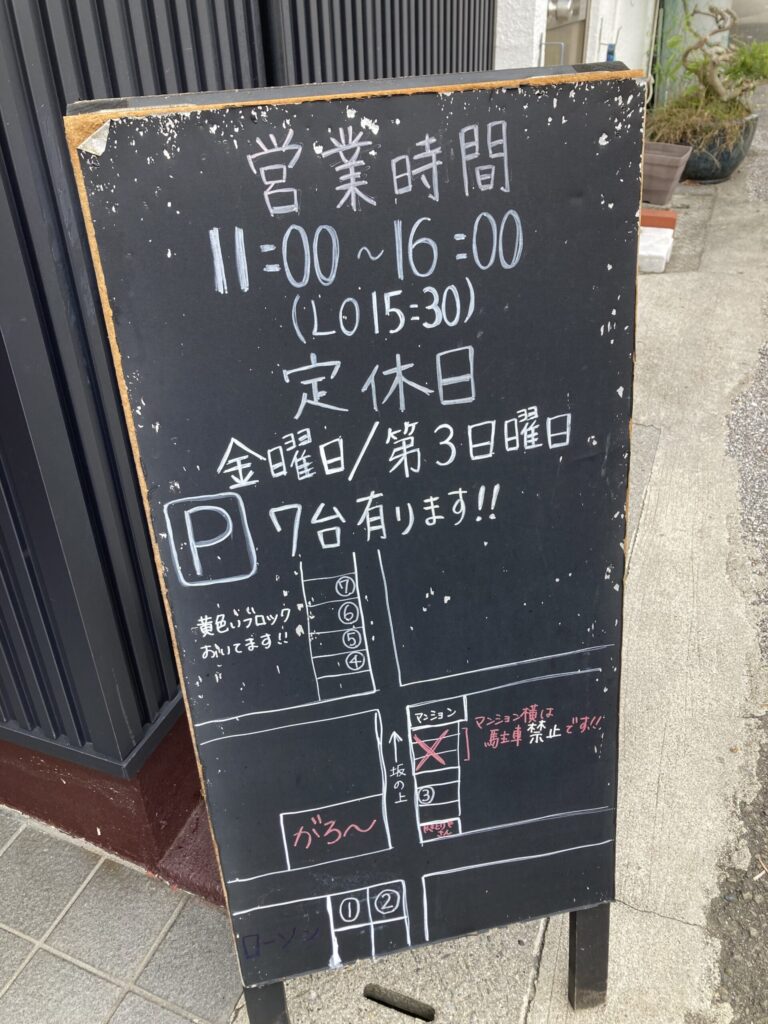 営業時間
11:00～16:00
(LO 15:30)
定休日
金曜日/第3日曜日
P 7台有ります!!
⑦
⑥
⑤
④
黄色いブロック
おいてます!!
マンション
マンション横は
駐車禁止です!!
↑
坂の上
③
がろ～
① ②
ローソン